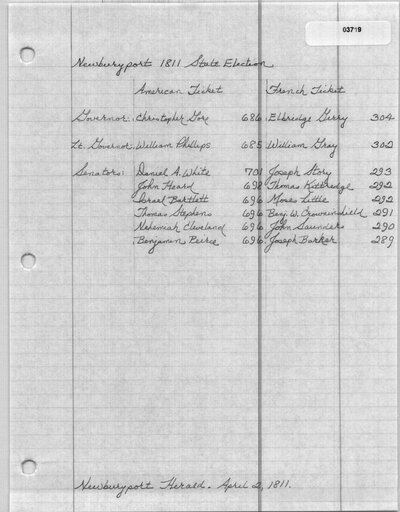 03719
Newburyport 1811 State Election
American Ticket French Ticket
Governor: Christopher Gore 686 Elbredge Gerry 304
Lt. Governor: William Phillips 685 William Gray 302
Senators: Daniel A. White 701 Joseph Story 293
John Heard 698 Thomas Kittredge 292
Israel Bartlett 696 Moses Little 292
Thomas Stephens 696 Benj. W. Crowninshield 291
Nehemiah Cleveland 696 John Saunders 290
Benjamin Peirce 696 Joseph Barker 289
Newburyport Herald. April 2, 1811.